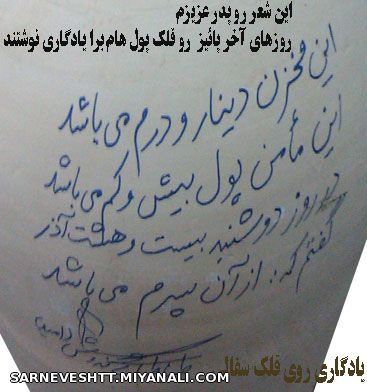 این شعر رو پدر عزیزم
روزهای آخر پائیز رو قلک پول هام برا یادگاری نوشتند
این مخزن دینار و درم می باشد
این مأمن پول بیش و کم می باشد
در روز دوشنبه بیست و هشت آذر
گفتم که: از آن پسرم می باشد
یادگاری روی قلک سفالی
SARNEVESHTT.MIYANALI.COM